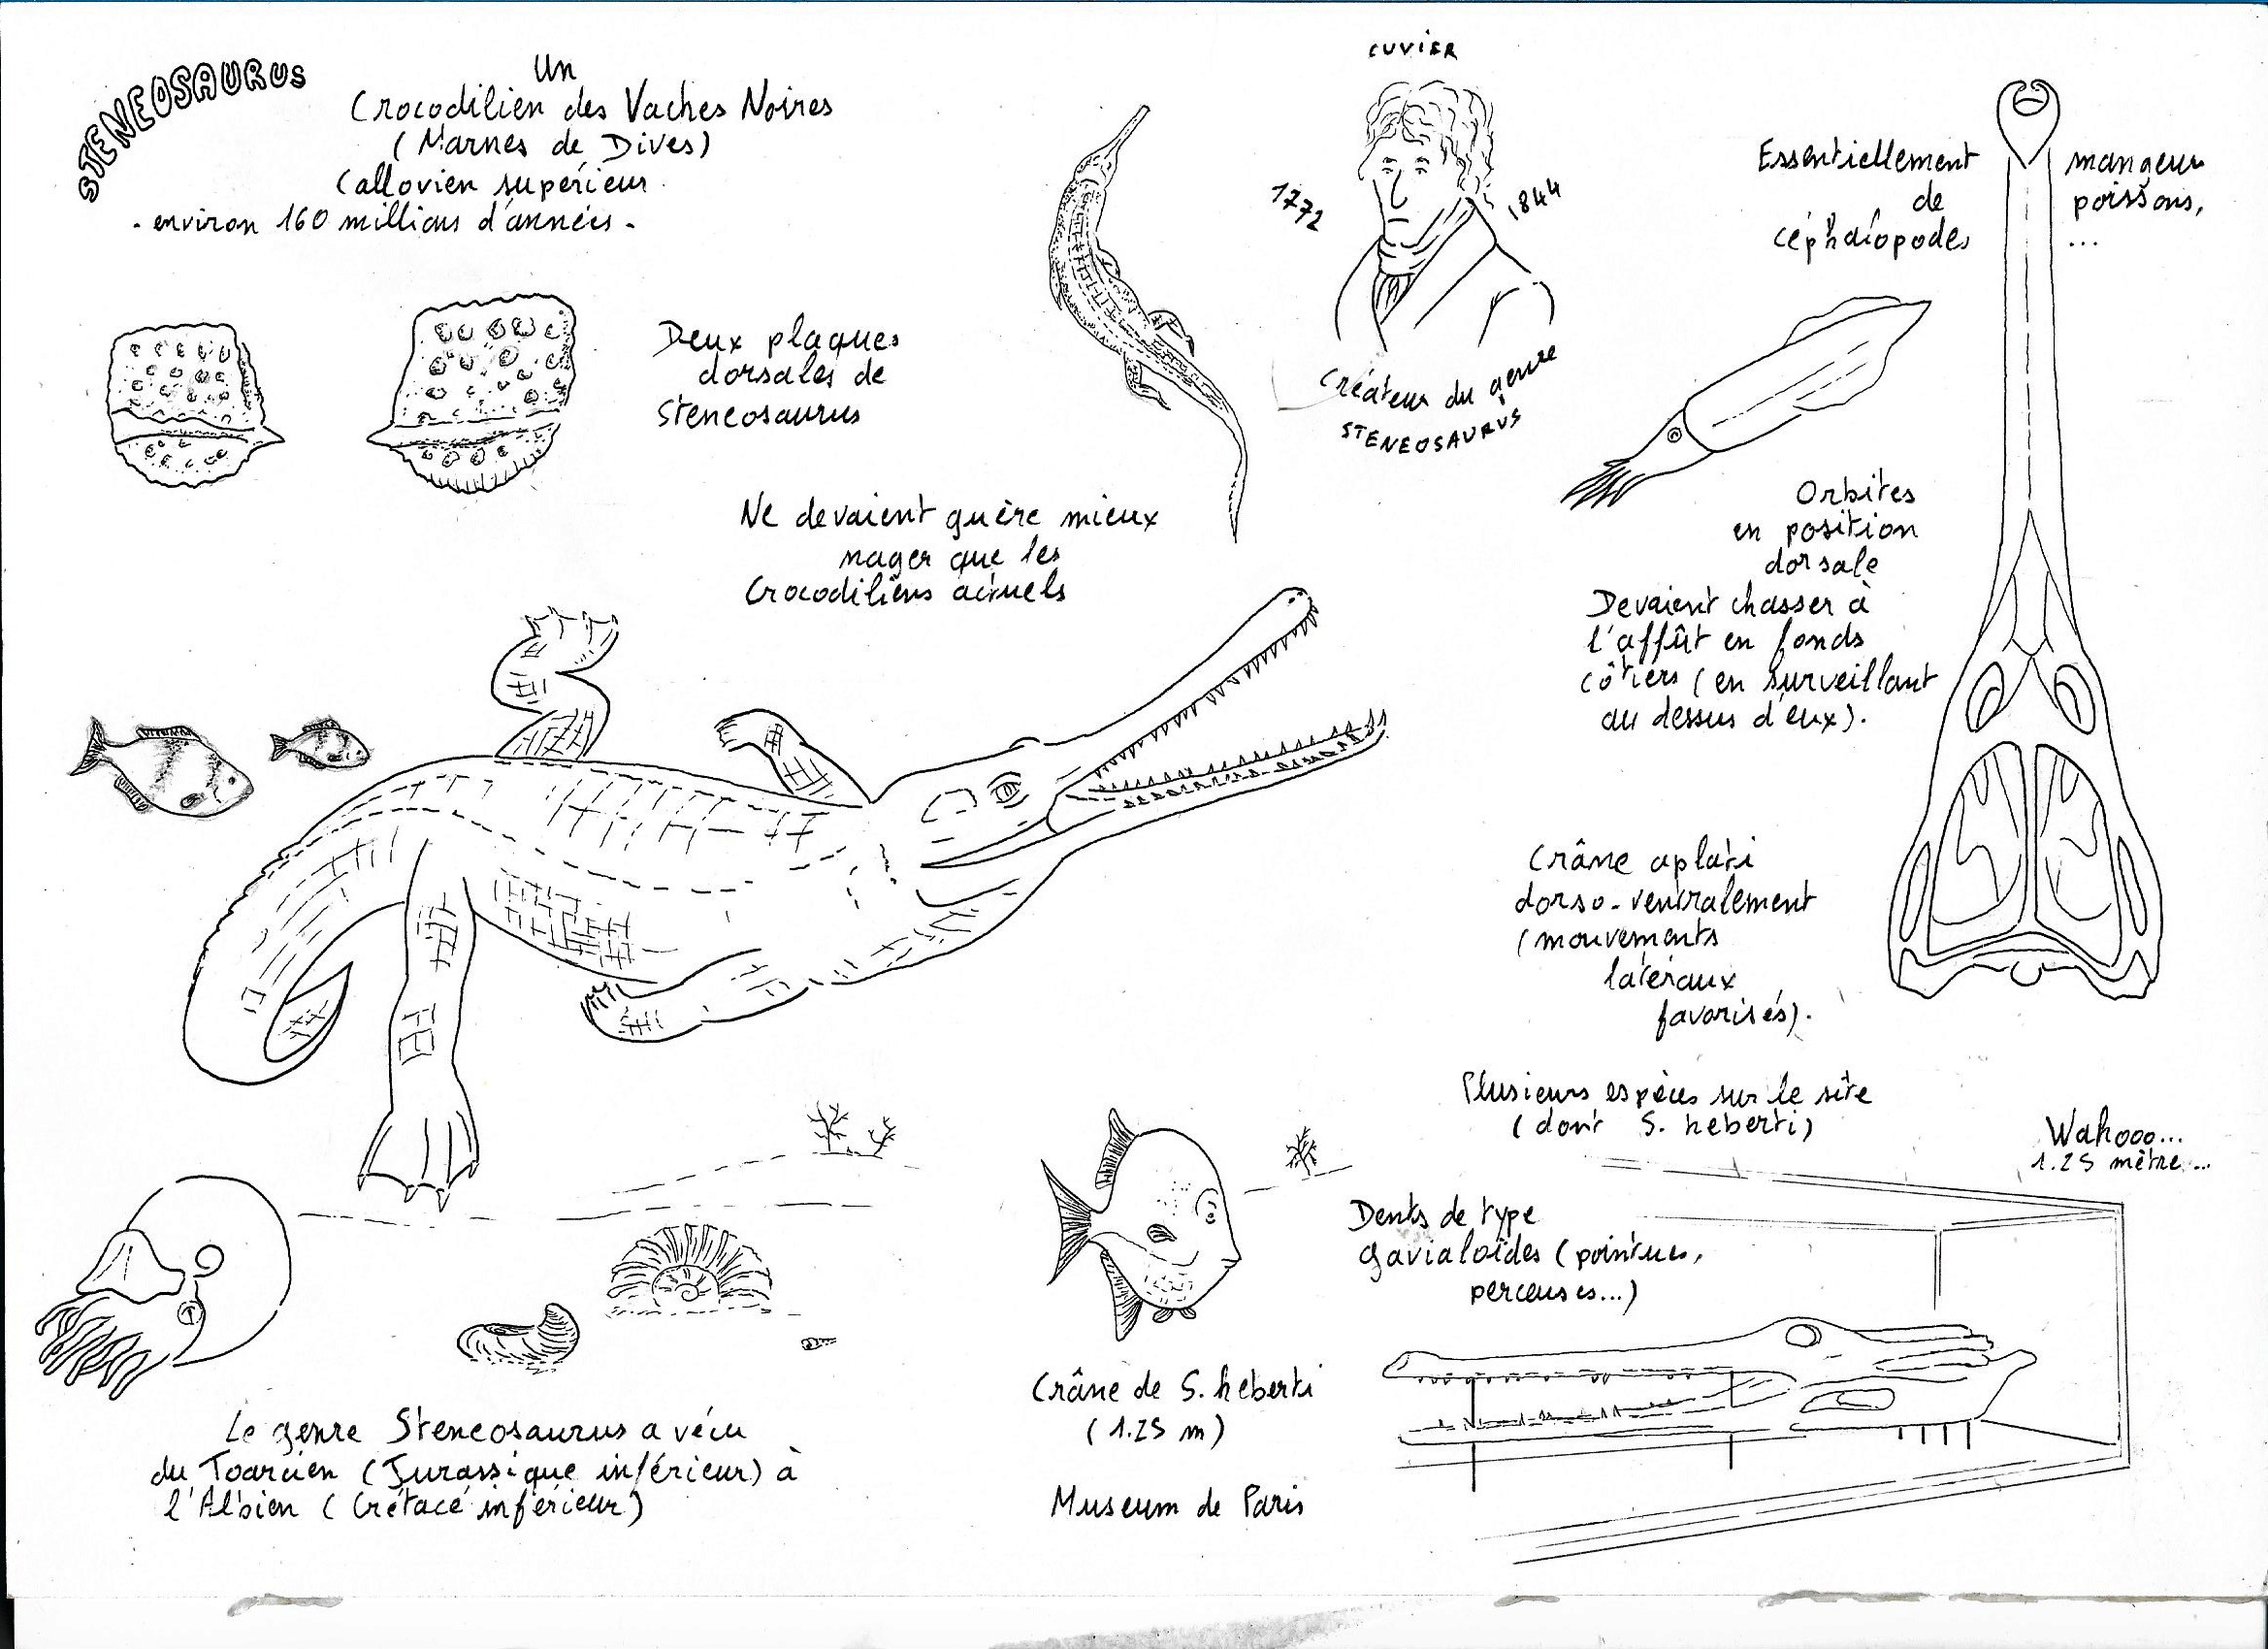 STENEOSAURUS
Un
Crocodilien des Vaches Noires
(Marnes de Dives)
Callovien supérieur
- environ 160 millions d'années -
Deux plaques
dorsales de
Steneosaurus
CUVIER
1772
1844
Créateur du genre
STENEOSAURUS
Essentiellement mangeur
de poissons,
céphalopodes ...
Ne devaient guère mieux
nager que les
Crocodiliens actuels
Orbites
en position
dorsale
Devaient chasser à
l'affût en fonds
côtiers (en surveillant
au dessus d'eux).
Crâne aplati
dorso-ventralement
(mouvements
latéraux
favorisés).
Plusieurs espèces sur le site
(dont S. heberti)
Wahooo...
1.25 mètre...
Dents de type
gavialoïdes (pointues,
perceuses...)
Crâne de S. heberti
(1.25 m)
Museum de Paris
Le genre Steneosaurus a vécu
du Toarcien (Jurassique inférieur) à
l'Albien (Crétacé inférieur)